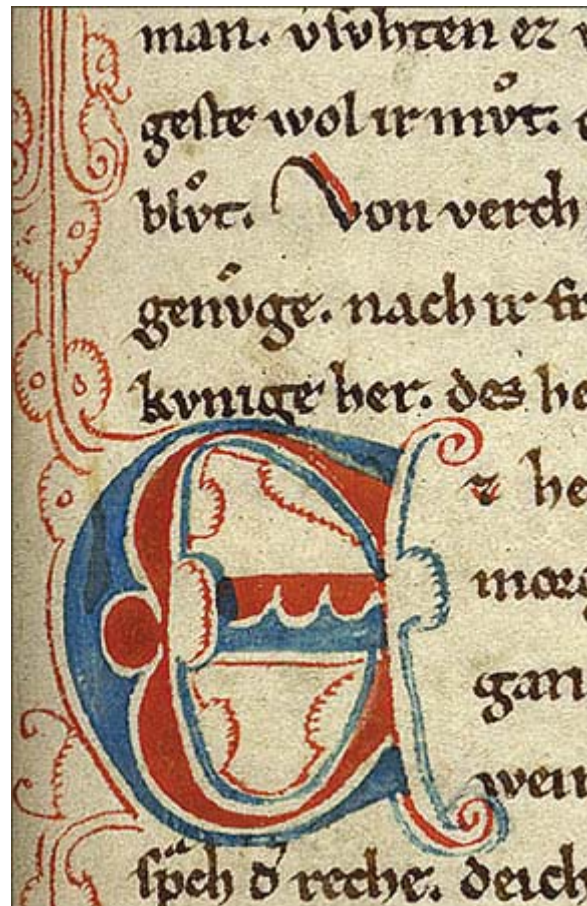 man. vͦſvhten ez
geſte wol ir mvͦt.
blvͦt. Von verch
genvͦge. nach ir
kvnige her. des he
E r he
morg
gan
wein
ſpͣch dˀ reche. deich